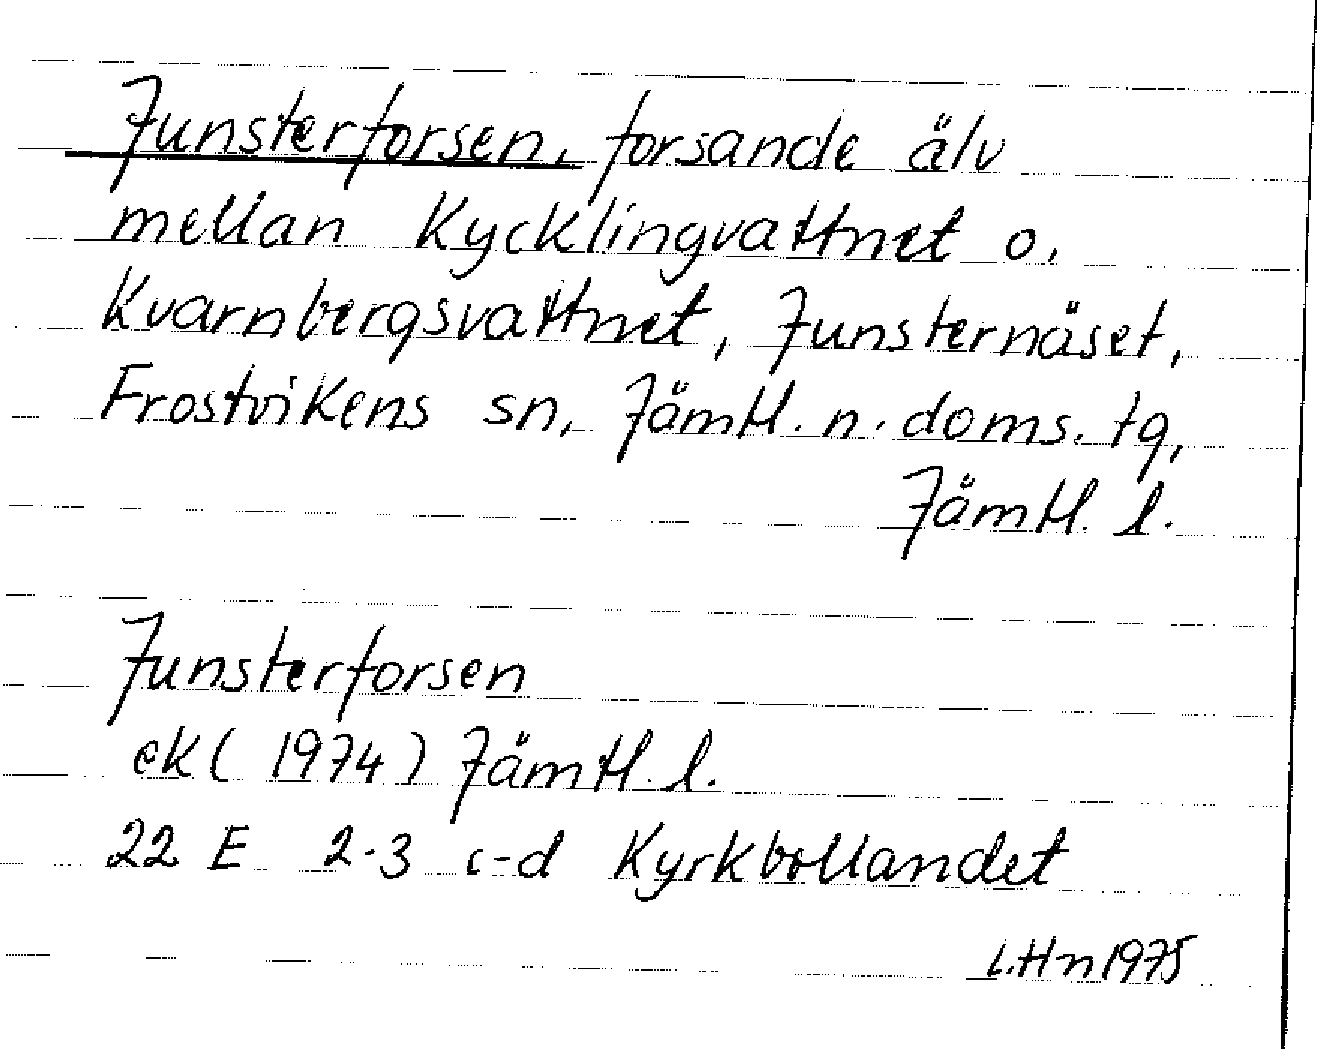 Junsterforsen, forsande älv
mellan Kycklingvattnet o.
Kvarnbergsvattnet, Junsternäset,
Frostvikens sn, Jämtl. n. doms. tg,
Jämtl. l.
Junsterforsen
ek (1974) Jämtl. l.
22 E 2-3 c-d Kyrkbollandet
L.Hn 1975